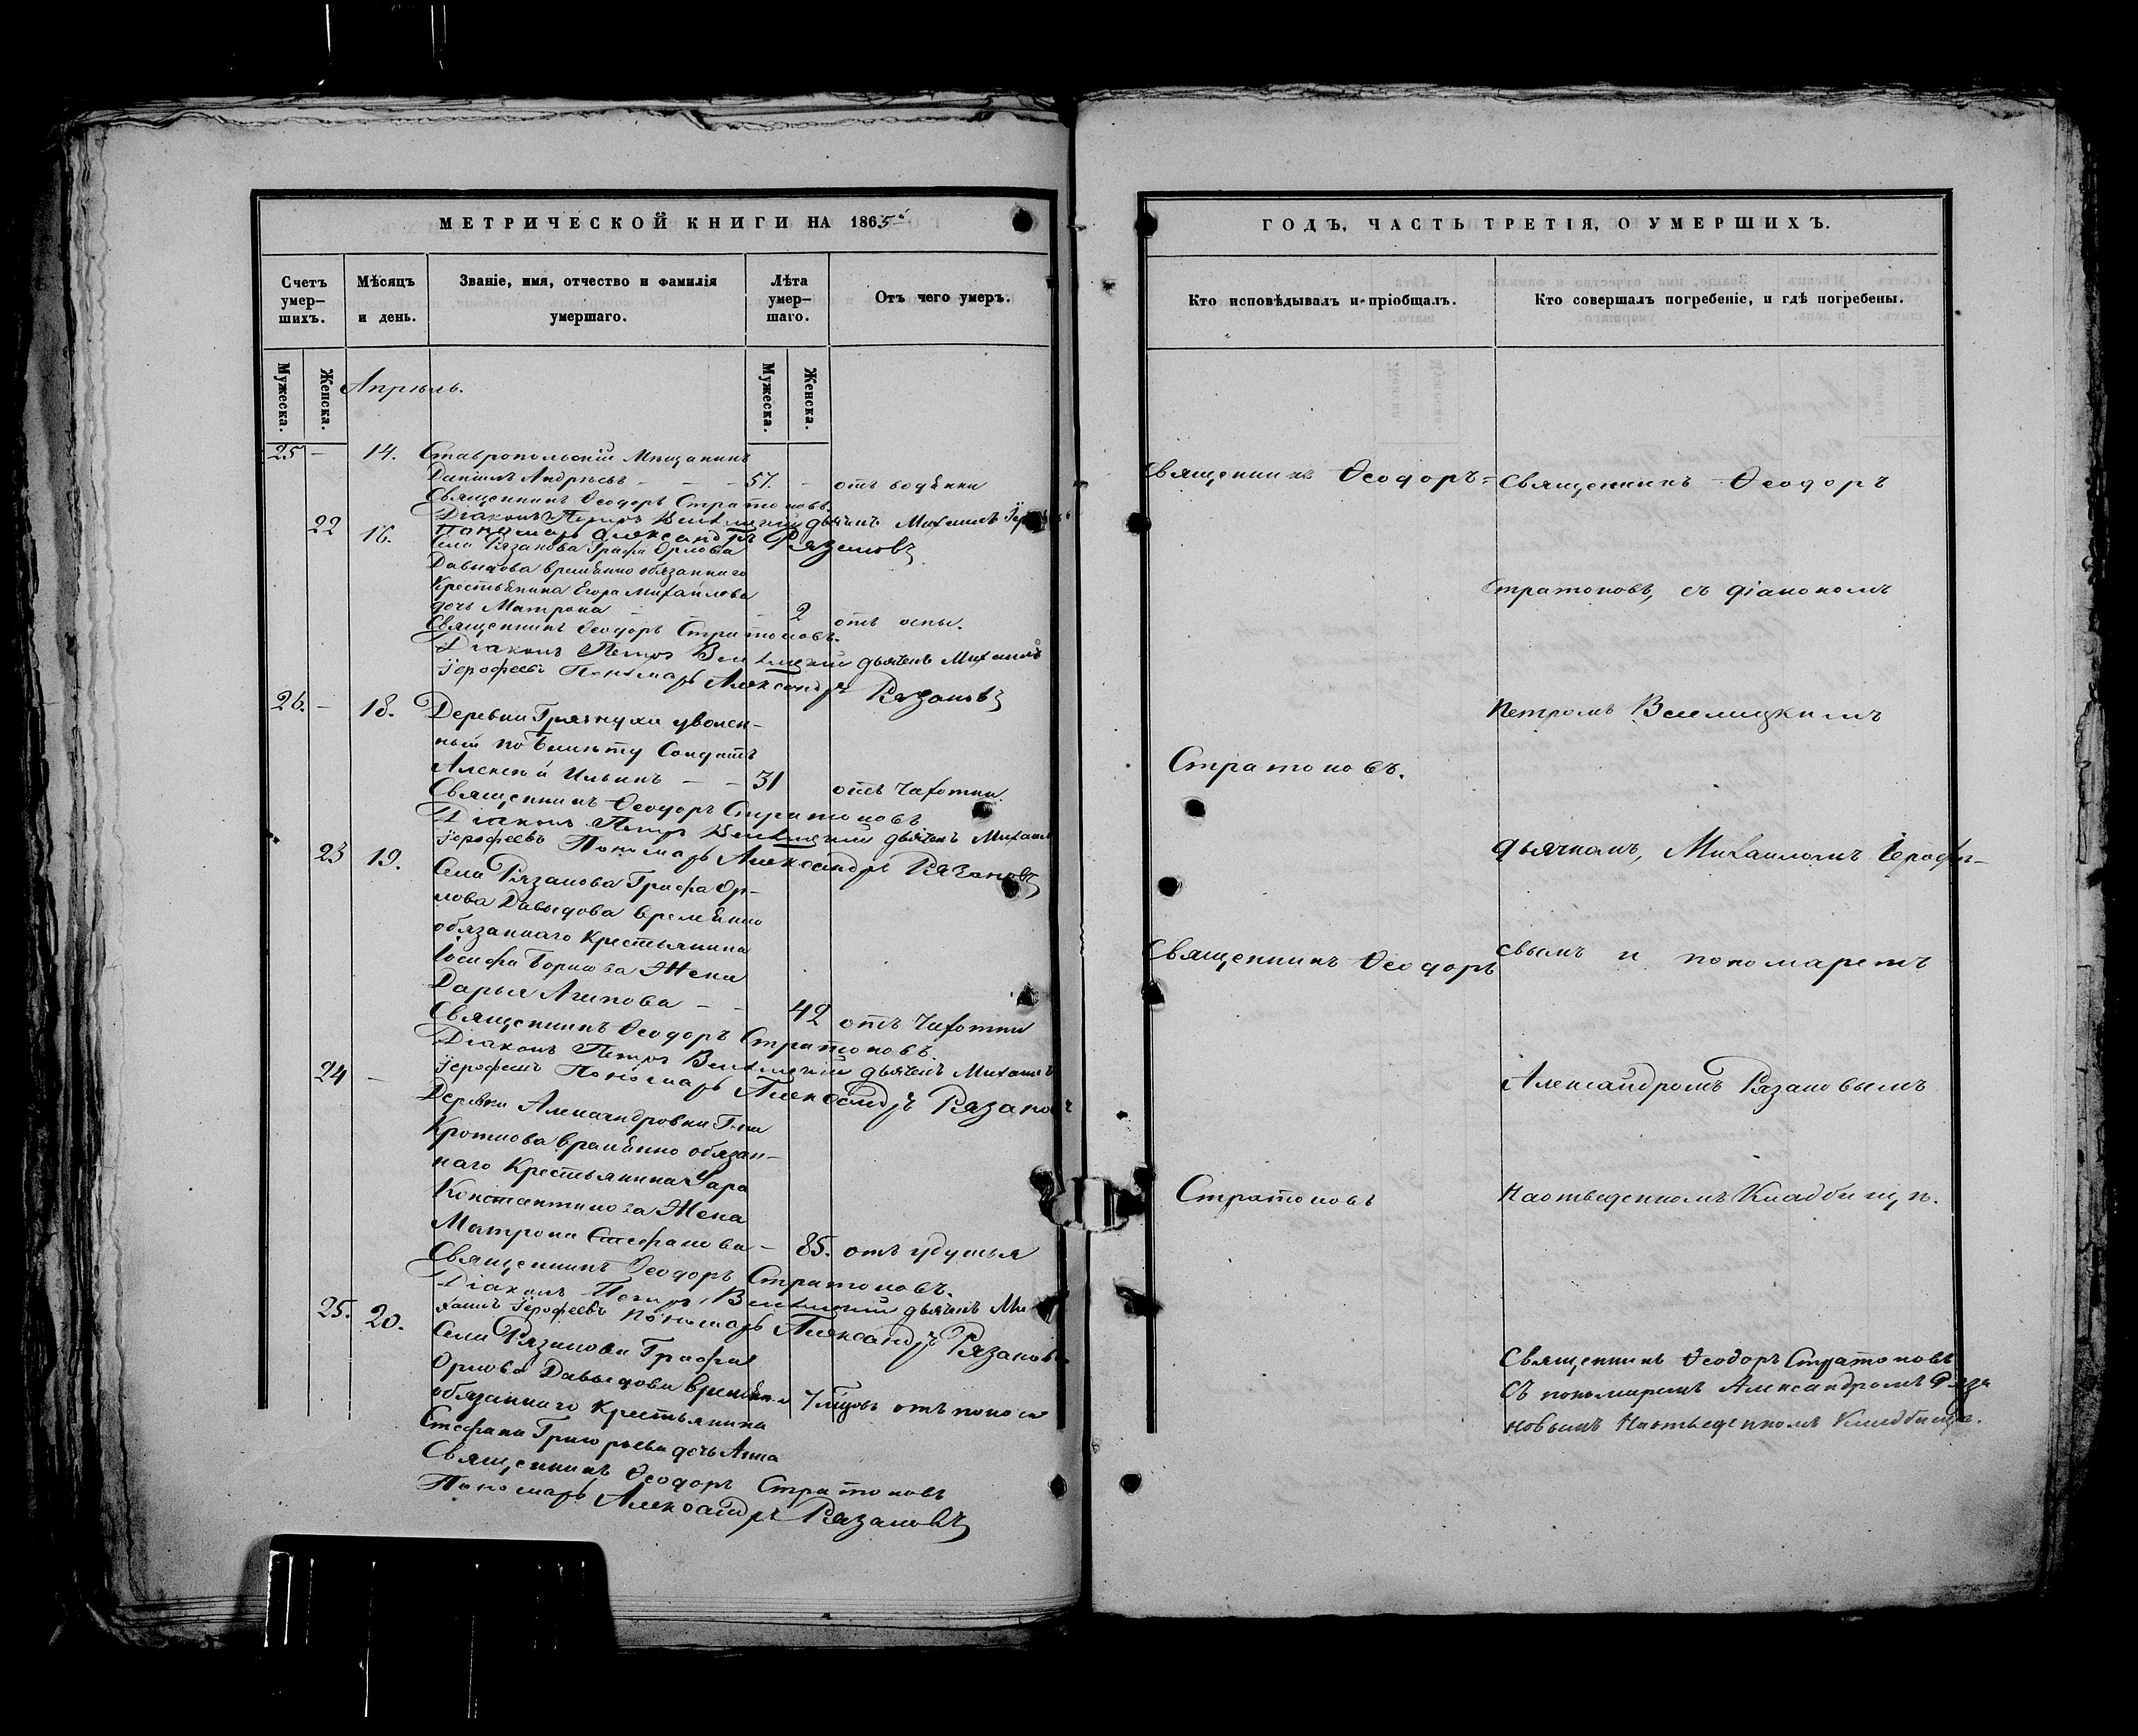 МЕТРИЧЕСКОЙ КНИГИ НА 1865й
Счетъ умер-шихъ.
Мѣсяцъ и день.
Званіе, имя, отчество и фамилія умершаго.
Лѣта умер-шаго.
Отъ чего умеръ.
Мужеска.
Женска.
Мужеска.
Женска.
Апрѣль.
25 – 14. Ставропольскій Мѣщанинъ
Даніилъ Андреевъ – – – 57. – отъ водянки
Священникъ Ѳеодоръ Стратоновъ.
Діаконъ Петръ дьячекъ Михаилъ
Пономарь Александръ Рязановъ
22 16. Села Рязанова Графа Орлова
Давыдова временно обязаннаго
Крестьянина Егора Михайлова
дочь Матрона – – 2 отъ оспы.
Священникъ Ѳеодоръ Стратоновъ.
Діаконъ Петръ дьячекъ Михаилъ
Іерофеевъ Пономарь Александръ Рязановъ
26. – 18. Деревни Грязнухи уволен-
ный по билету Солдатъ
Алексѣй Ильинъ – – 31 отъ Чахотки
Священникъ Ѳеодоръ Стратоновъ
Діаконъ Петръ дьячекъ Михаилъ
Іерофеевъ Пономарь Александръ Рязановъ
23 19. Села Рязанова Графа Ор-
лова Давыдова временно
обязаннаго Крестьянина
Іосифа Борисова Жена
Дарья Агапова – – 42 отъ Чахотки
Священникъ Ѳеодоръ Стратоновъ.
Діаконъ Петръ дьячекъ Михаилъ
Іерофеевъ Пономарь Александръ Рязановъ
24 – Деревни Александровки Г-на
Кроткова временно обязан-
наго Крестьянина
Константинова Жена
Матрона Стефанова – 85. отъ удушья
Священникъ Ѳеодоръ Стратоновъ.
Діаконъ Петръ дьячекъ Ми-
хаилъ Іерофеевъ Пономарь Александръ Рязановъ
25. 20. Села Рязанова Графа
Орлова Давыдова временно
обязаннаго Крестьянина 7 отъ поноса
Стефана Григорьева дочь Анна
Священникъ Ѳеодоръ Стратоновъ
Пономарь Александръ Рязановъ
ГОДЪ, ЧАСТЬ ТРЕТІЯ, О УМЕРШИХЪ.
Кто исповѣдывалъ и пріобщалъ.
Кто совершалъ погребеніе, и гдѣ погребены.
Священникъ Ѳеодоръ
Стратоновъ.
Священникъ Ѳеодоръ
Стратоновъ
Священникъ Ѳеодоръ
Стратоновъ, съ діакономъ
Петромъ
дьячкомъ, Михаиломъ Іерофѣ-
евымъ и пономаремъ
Александромъ Рязановымъ
На отведенномъ Кладбищѣ.
Священникъ Ѳеодоръ Стратоновъ
съ пономаремъ Александромъ Ряза
новымъ На отведенномъ Кладбищѣ.